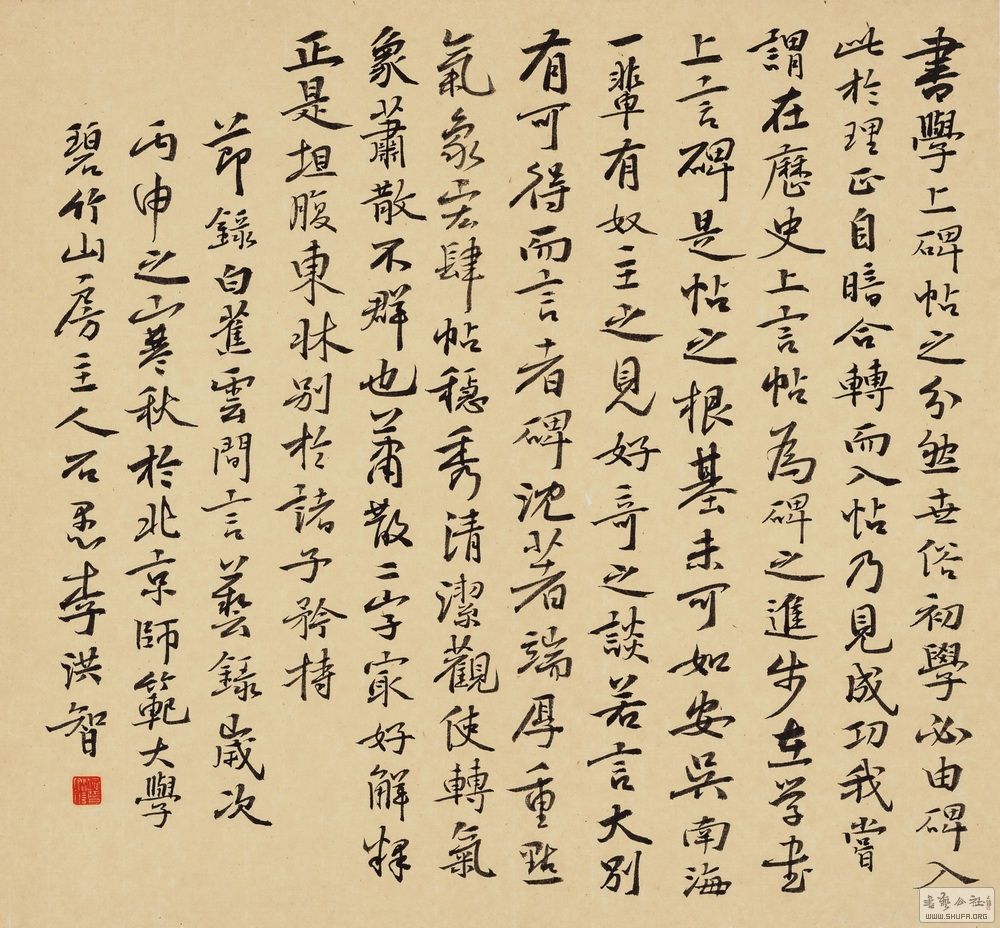 書學上碑帖之分然世俗初學必由碑入
此於理正自暗合轉而入帖乃見成功我嘗
謂在歷史上言帖為碑之進步在学书
上言碑是帖之根基未可如安吳南海
一輩有奴主之見好奇之談若言大別
有可得而言者碑沈著端厚重點
氣象宏肆帖穩秀清潔觀使轉氣
象蕭散不群也蕭散二字宜好解釋
正是坦腹東牀別於諸子矜持
節錄白蕉雲間言藝錄歲次
丙申之山寒秋於北京師範大學
碧竹山房主人石愚李洪智
WWW.SHUFA.ORG